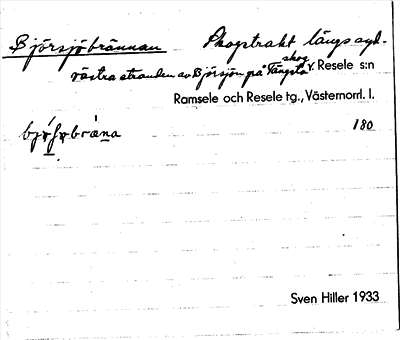 Björsjöbrännan Skogstrakt längs syd-
västra stranden av Björsjön på Tängsta skog, Resele s:n
Ramsele och Resele tg., Västernorrl. l.
180
Sven Hiller 1933